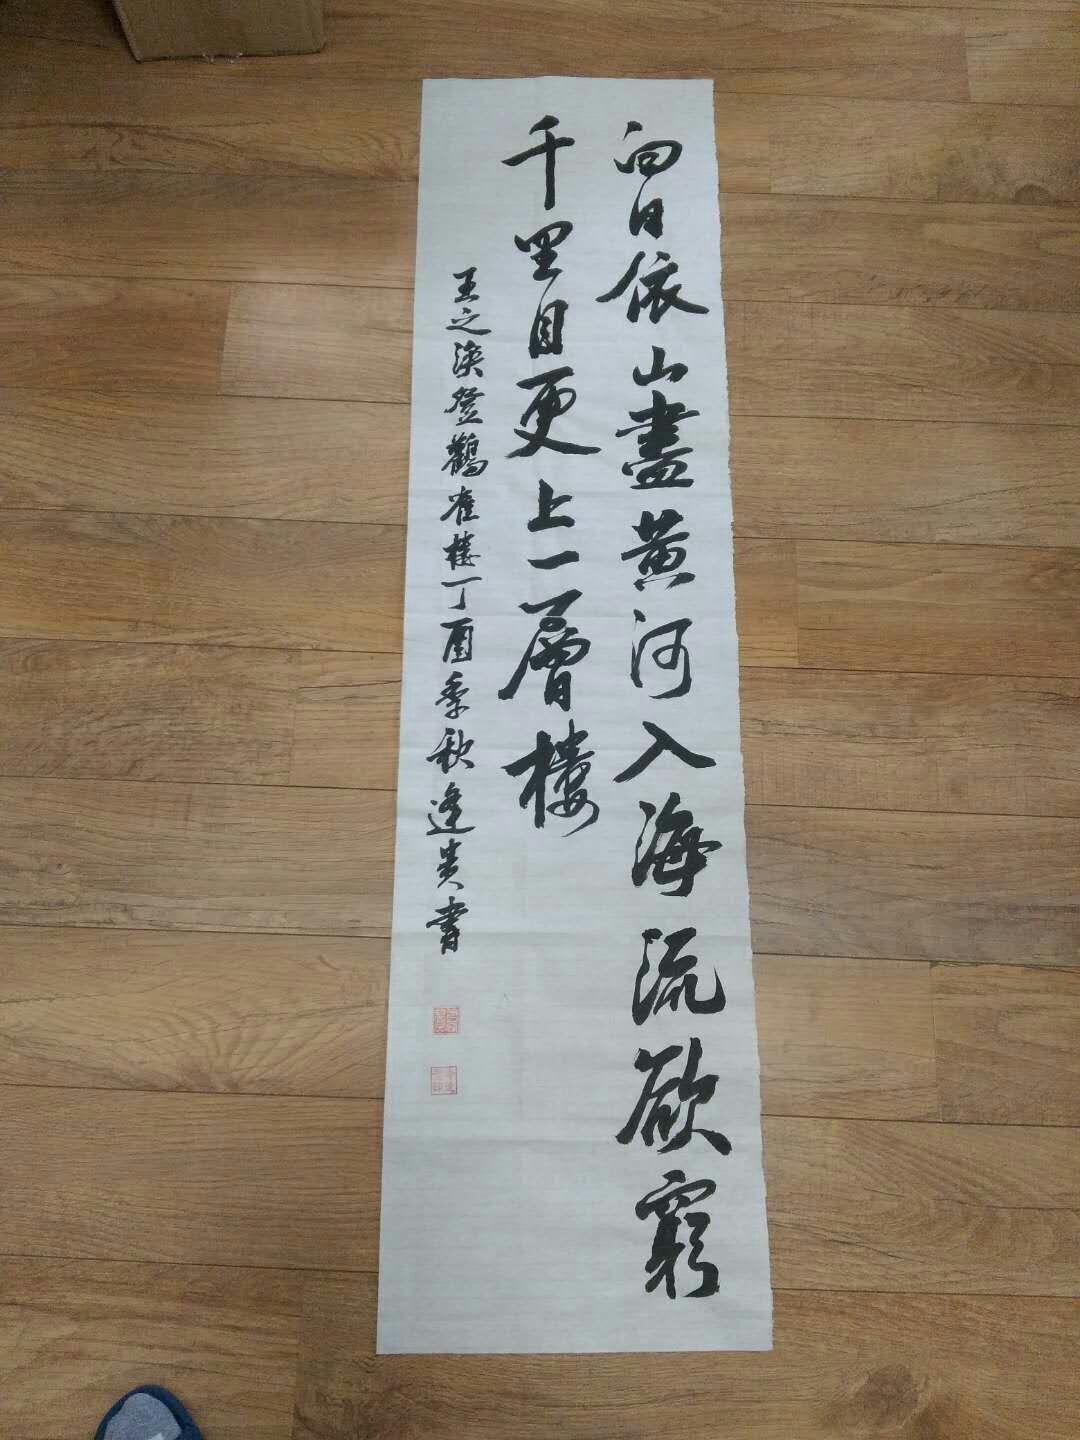 白日依山盡黄河入海流欲窮
千里目更上一層樓
王之渙登鸛雀樓丁酉季秋逢贵書